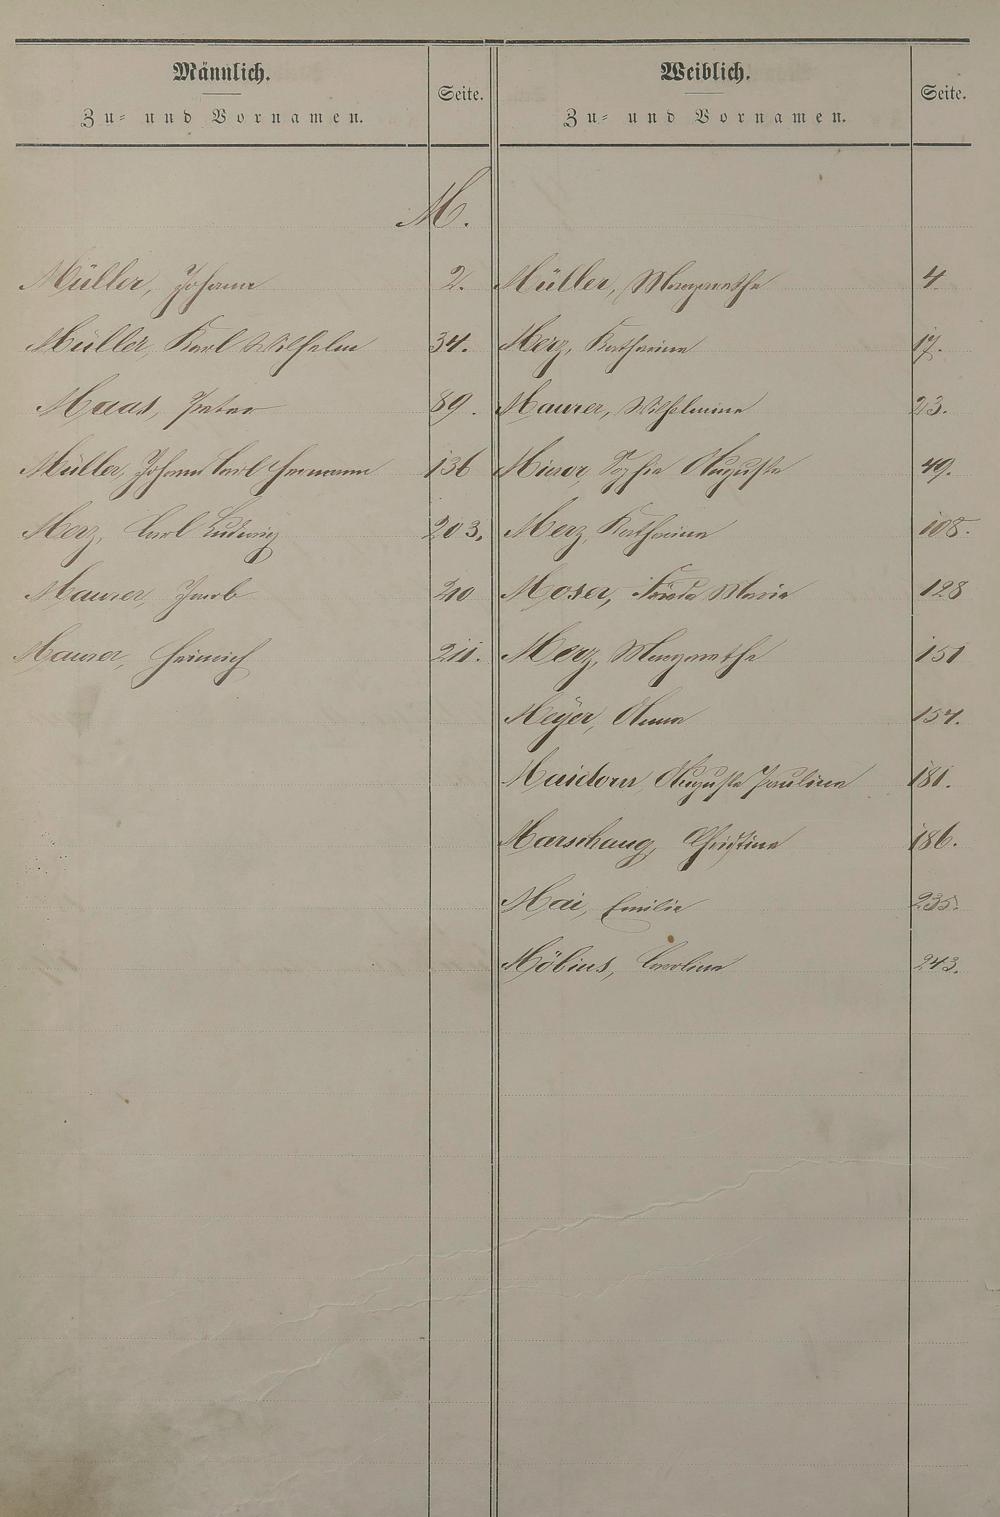 Männlich. Seite. Weiblich. Seite.
Zu- und Vornamen. Zu- und Vornamen.
M.
Müller, Johann 2. Müller, Margarethe 4
Müller, Karl Wilhelm 34. Merz, Katharina 17.
Maas, Peter 89. Maurer, Wilhelmine 23.
Müller, Johann Carl Hermann 136 Sophie Auguste 49.
Merz, Carl Ludwig 203. Merz, Katharina 108.
Maurer, Jacob 210 Moser, Frieda Maria 128
Maurer, Heinrich 211. Merz, Margarethe 151
Meÿer, Anna 157.
Maidorn, Auguste Pauline 181.
Marschang, Christine 186.
Mai, Emilie 235.
Möbius, Caroline 243.